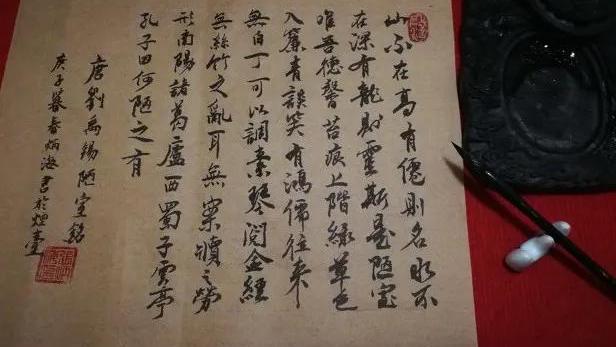 山不在高有僊則名水不
在深有龍則靈斯是陋室
唯吾德馨苔痕上階緑草色
入簾青談笑有鴻儒往来
無白丁可以調素琴閲金經
無絲竹之亂耳無案牘之勞
形南陽諸葛廬西蜀子雲亭
孔子曰何陋之有
唐劉禹錫陋室銘
庚子暮春炳海書於煙臺